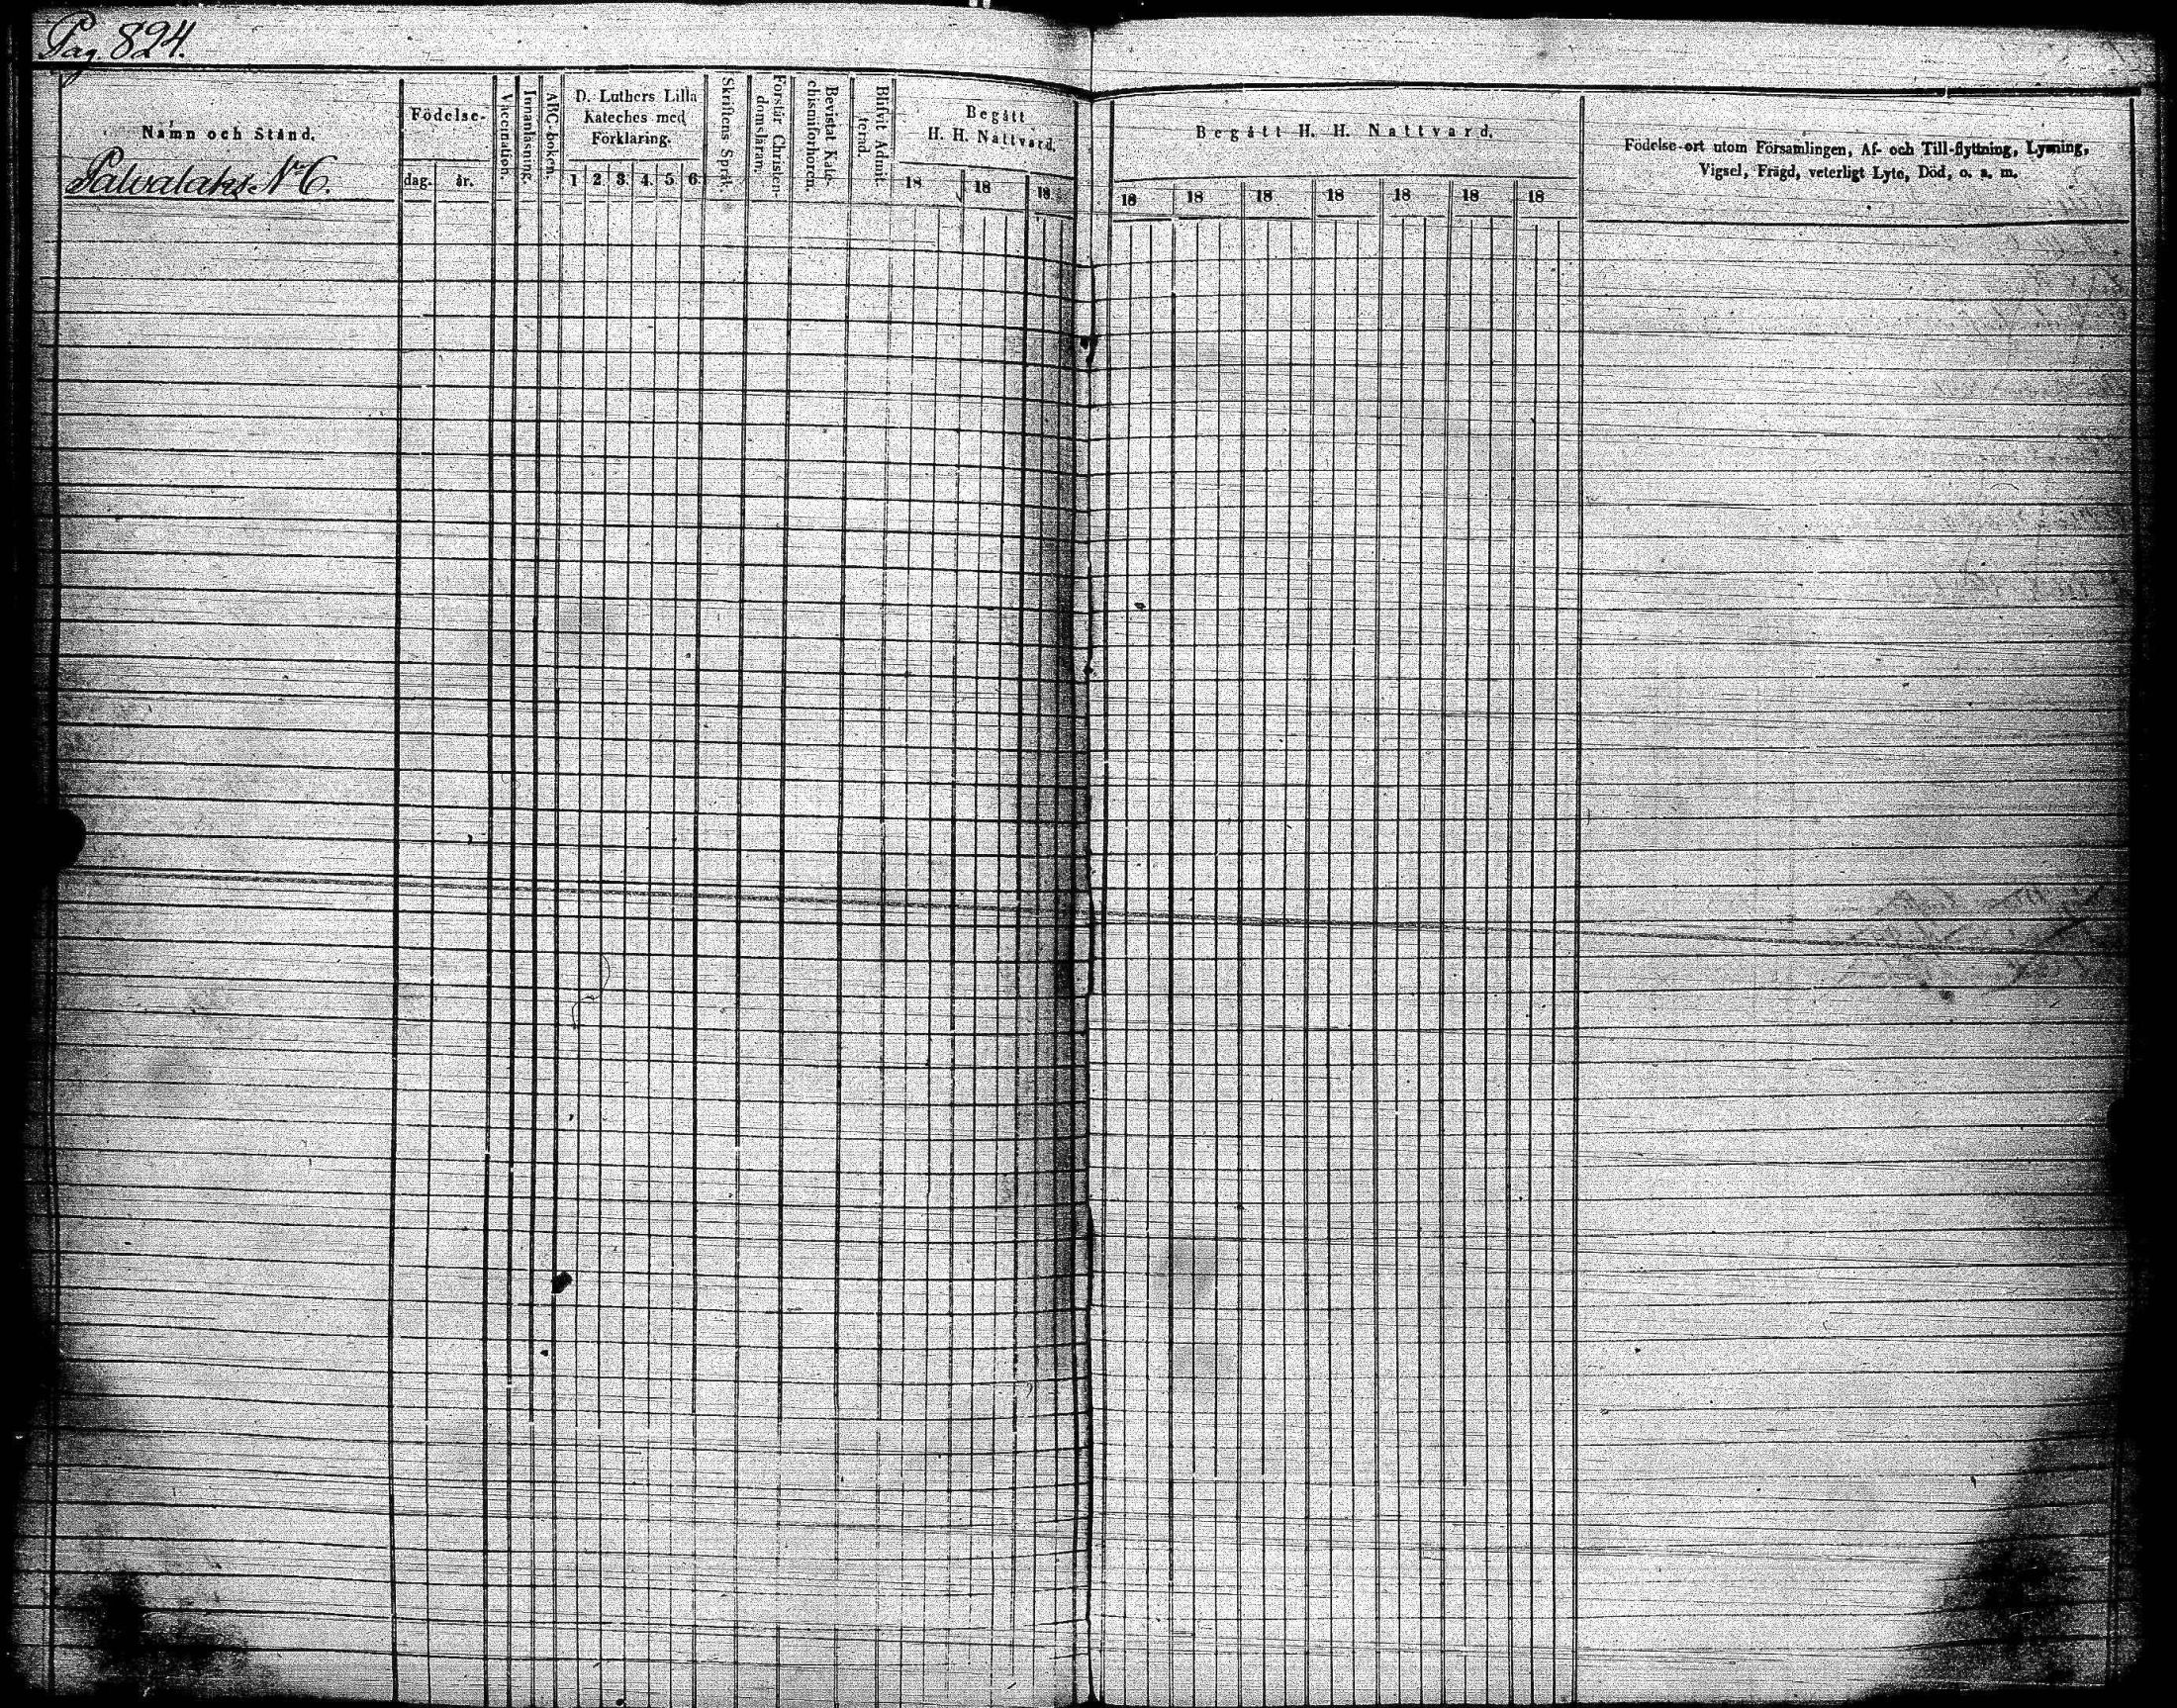 Pag. 824.
Namn och Stånd.
Palvalaks N:o 6.
Födelse-
dag. år.
Vaccination.
Innanläsning.
ABC-boken.
D. Luthers Lilla
Kateches med
Förklaring.
1 2. 3. 4. 5 6.
Skriftens Språk.
Förstår Christen-
domsläran.
Bevistat Kate-
chismiförhören.
Blifvit Admit-
terad.
Begått
H. H. Nattvard.
18 18 18
Begått H. H. Nattvard.
18 18 18 18 18 18 18
Födelse-ort utom Församlingen, Af- och Till-flyttning, Lysning,
Vigsel, Frägd, veterligt Lyte, Död, o. s. m.